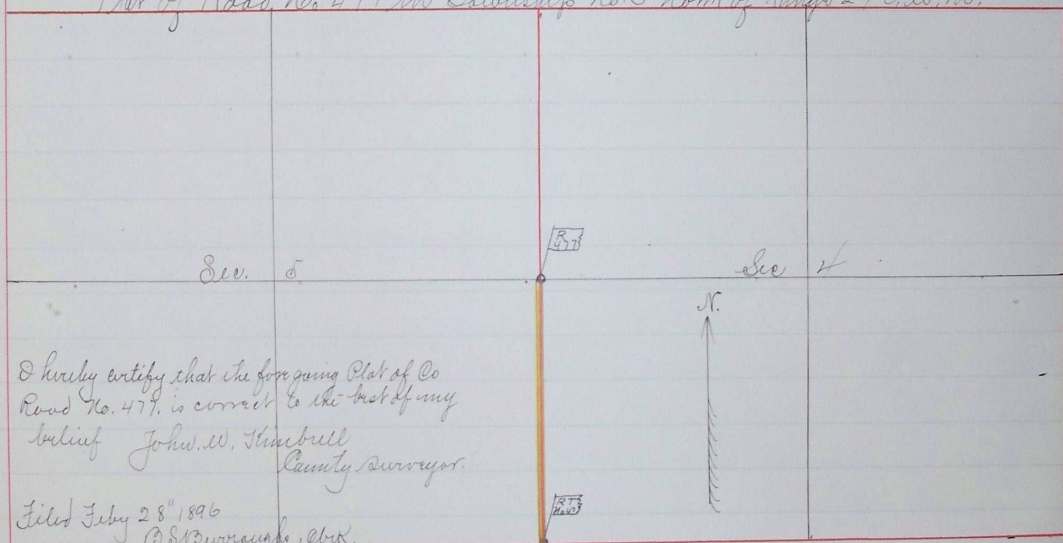 Plat of Road No. 477 in Township No. 3 North of Range 2
R
477
Sec. 5
Sec 4
N.
I hereby certify that the foregoing Plat of Co
Road No. 477, is correct to the best of my
belief John. W. Kimbrell
County Surveyor.
Filed Feby 28" 1896
B S Burroughs, Clerk.